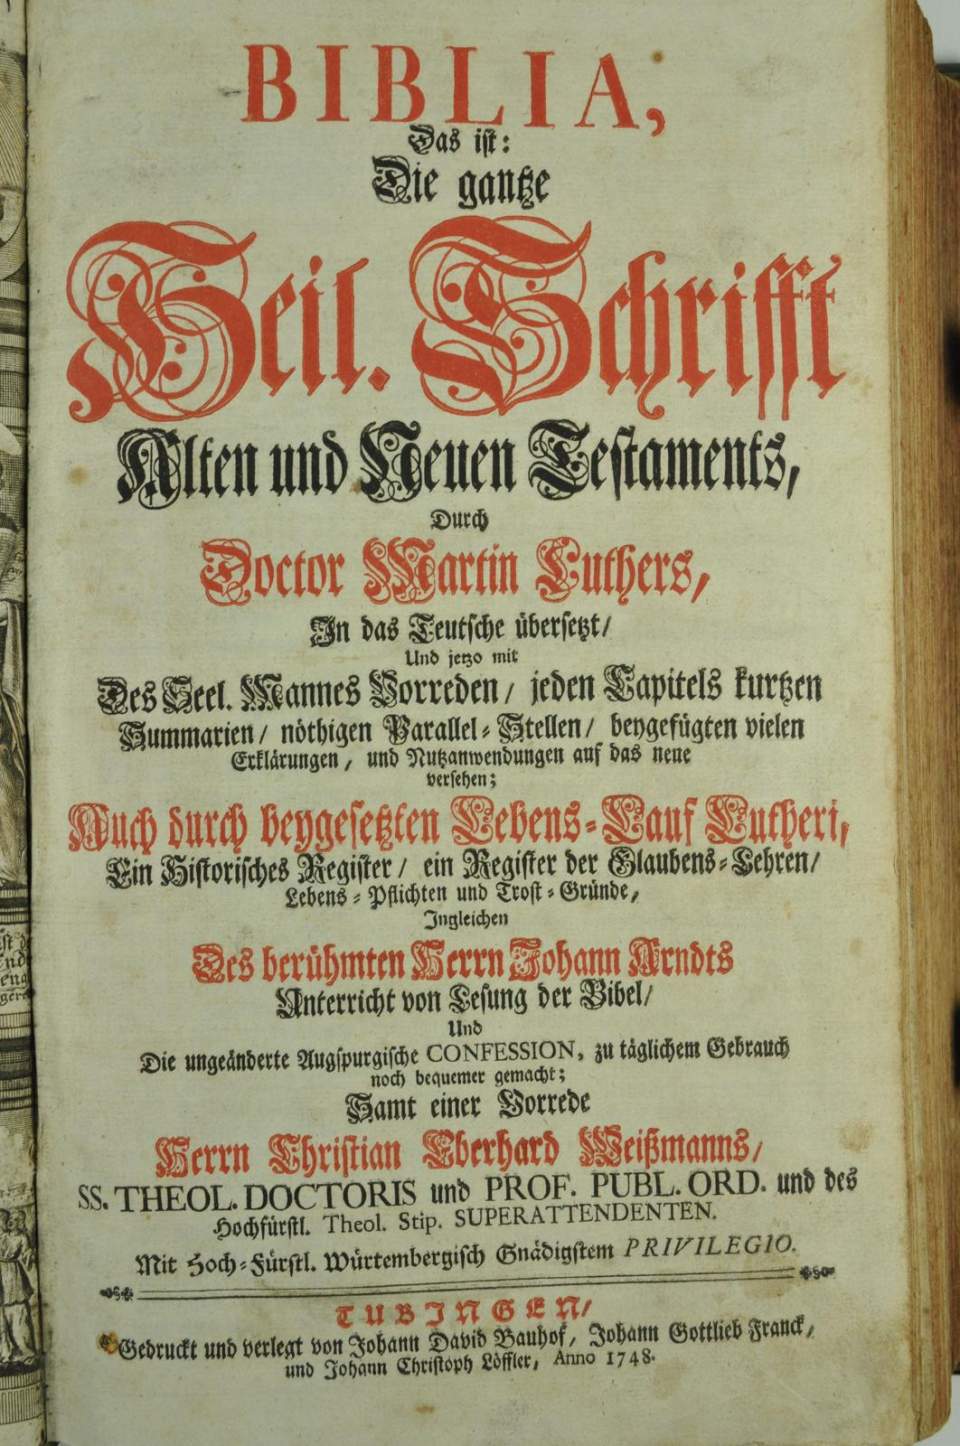 BIBLIA,
Das ist:
Die gantze
Heil. Schrifft
Alten und Neuen Testaments,
Durch
Doctor Martin Luthers,
In das Teutsche übersetzt/
Und jetzo mit
Des Seel. Mannes Vorreden/ jeden Capitels kurtzen
Summarien/ nöthigen Parallel-Stellen/ beygefügten vielen
Erklärungen, und Nutzanwendungen auf das neue
versehen;
Auch durch beygesetzten Lebens-Lauf Lutheri,
Ein Historisches Register/ ein Register der Glaubens-Lehren/
Lebens-Pflichten und Trost-Gründe,
Ingleichen
Des berühmten Herrn Johann Arndts
Unterricht von Lesung der Bibel/
Und
Die ungeänderte Augspurgische CONFESSION, zu täglichem Gebrauch
noch bequemer gemacht;
Samt einer Vorrede
Herrn Christian Eberhard Weißmanns/
SS. THEOL. DOCTORIS und PROF. PUBL. ORD. und des
Hochfürstl. Theol. Stip. SUPERATTENDENTEN.
Mit Hoch-Fürstl. Würtembergisch Gnädigstem PRIVILEGIO.
TUBINGEN/
Gedruckt und verlegt von Johann David Bauhof, Johann Gottlieb Franck,
und Johann Christoph Löffler, Anno 1748.